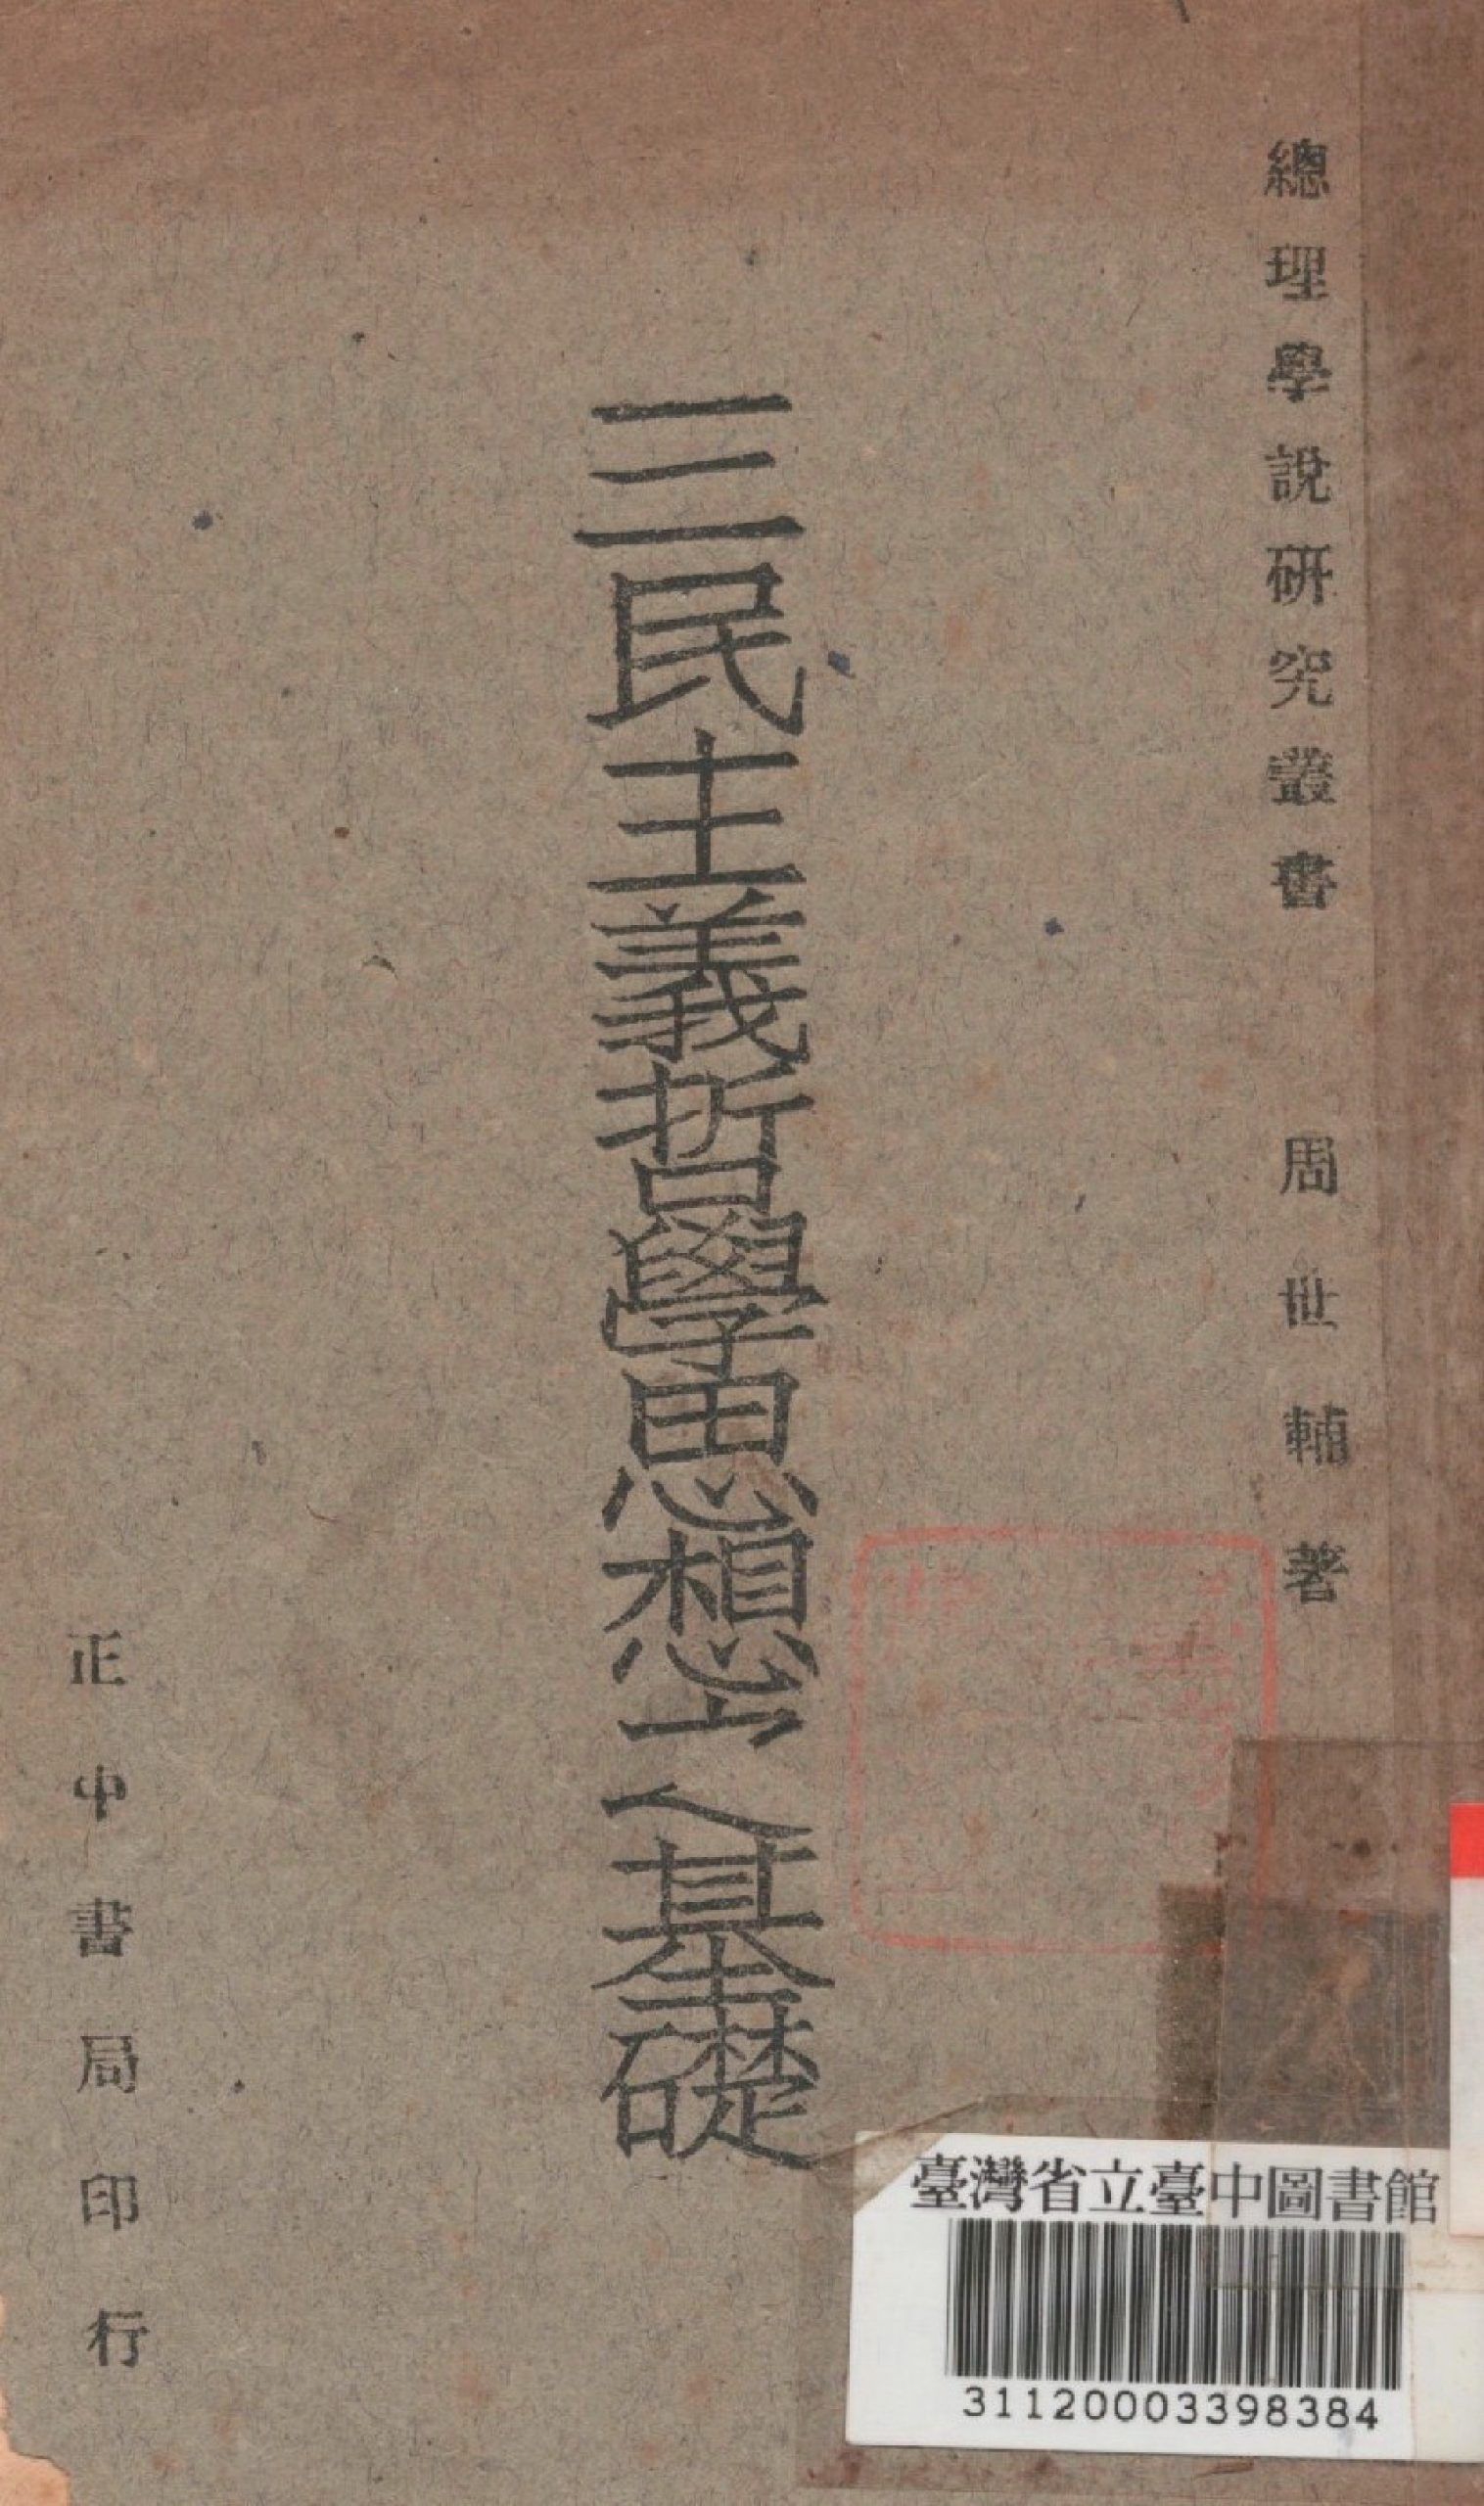 總理學說研究叢書
周世輔著
三民主義哲學思想之基礎
正中書局印行
臺灣省立臺中圖書館
31120003398384